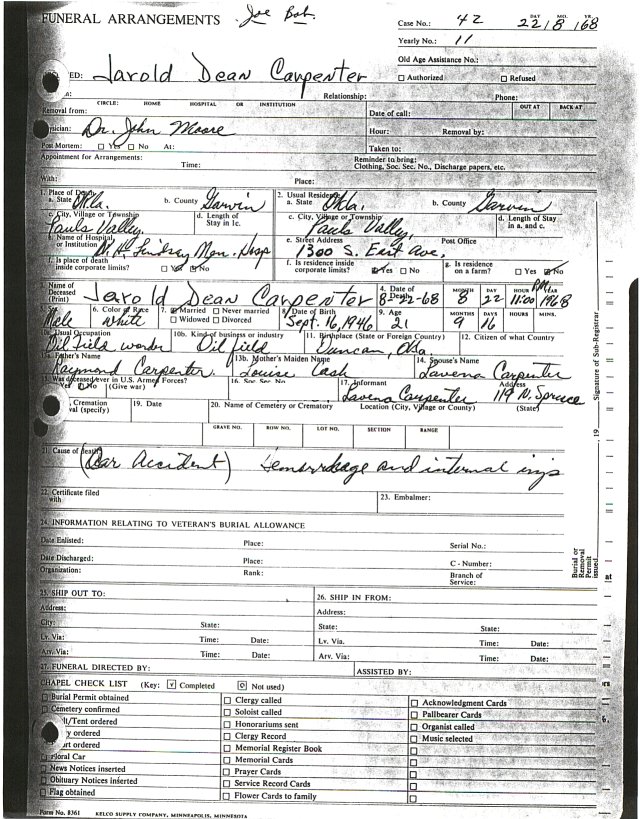 FUNERAL ARRANGEMENTS Joe Bob.
Case No.: 42 DAY 22 MO. 8 YR. 168
Yearly No.: 11
Old Age Assistance No.:
ED: Jarold Dean Carpenter Authorized Refused
Relationship: Phone:
CIRCLE: HOME HOSPITAL OR INSTITUTION OUT AT BACK AT
Removal from: Date of call:
Dr. John Moore Hour: Removal by:
Post Mortem: Yes No At: Taken to:
Appointment for Arrangements: Time: Reminder to bring:
Clothing, Soc. Sec. No., Discharge papers, etc.
With: Place:
1. Place of Death 2. Usual Residence
a. State Okla. b. County Garvin a. State Okla. b. County Garvin
c. City, Village or Township Pauls Valley. d. Length of Stay in 1c. c. City, Village or Township Pauls Valley, d. Length of Stay in a. and c.
e. Name of Hospital or Institution Lindsay Mem. Hosp e. Street Address 1300 S. East Ave. Post Office
f. Is place of death inside corporate limits? Yes No f. Is residence inside corporate limits? Yes No g. Is residence on a farm? Yes No
3. Name of Deceased (Print) Jerold Dean Carpenter 4. Date of Death 8-22-68 MONTH 8 DAY 22 HOUR 11:00 PM. YEAR 1968
5. Sex Male 6. Color or Race White 7. Married Never married Widowed Divorced 8. Date of Birth Sept. 16, 1946 9. Age 21 MONTHS 9 DAYS 16 HOURS MINS.
10a. Usual Occupation Oil field worker 10b. Kind of business or industry Oil field 11. Birthplace (State or Foreign Country) Duncan, Okla. 12. Citizen of what Country
13a. Father's Name Raymond Carpenter. 13b. Mother's Maiden Name Louise Cash 14. Spouse's Name Lavena Carpenter
15. Was deceased ever in U.S. Armed Forces? Yes No (Give war) 16. Soc. Sec. No. 17. Informant Lavena Carpenter Address 119 N. Spruce
Cremation
val (specify) 19. Date 20. Name of Cemetery or Crematory Location (City, Village or County) (State)
GRAVE NO. ROW NO. LOT NO. SECTION RANGE
21. Cause of death (Car Accident) Hemorrhage and internal injs
22. Certificate filed with 23. Embalmer:
24. INFORMATION RELATING TO VETERAN'S BURIAL ALLOWANCE
Date Enlisted: Place: Serial No.:
Date Discharged: Place: C - Number:
Organization: Rank: Branch of Service:
25. SHIP OUT TO: 26. SHIP IN FROM:
Address: Address:
City: State: State: State:
Lv. Via: Time: Date: Lv. Via. Time: Date:
Arv. Via: Time: Date: Arv. Via: Time: Date:
27. FUNERAL DIRECTED BY: ASSISTED BY:
CHAPEL CHECK LIST (Key: √ Completed O Not used)
Burial Permit obtained Clergy called Acknowledgment Cards
Cemetery confirmed Soloist called Pallbearer Cards
lt/Tent ordered Honorariums sent Organist called
y ordered Clergy Record Music selected
rt ordered Memorial Register Book
Floral Car Memorial Cards
News Notices inserted Prayer Cards
Obituary Notices inserted Service Record Cards
Flag obtained Flower Cards to family
Form No. 8361 KELCO SUPPLY COMPANY, MINNEAPOLIS, MINNESOTA
Signature of Sub-Registrar
, 19
Burial or Removal Permit issued
at